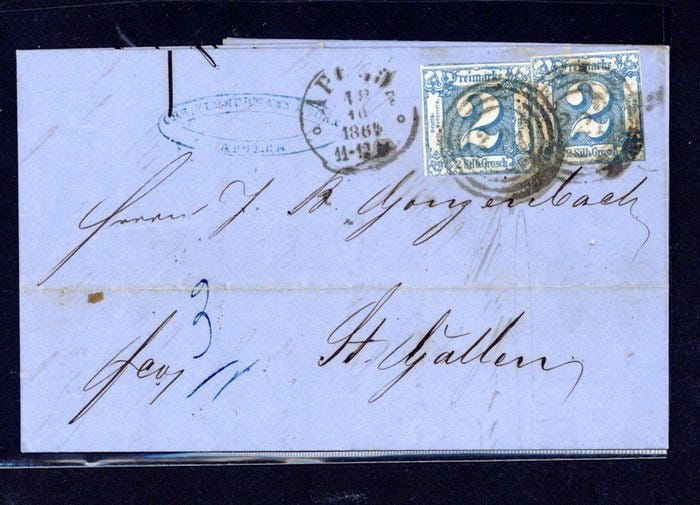 APOLDA
18
10
1864
11-12
Freimarke
2
2 Silb.Grosch.
Freimarke
2
2 Silb.Grosch.
APOLDA
Herrn J. B. Gonzenbach
St. Gallen